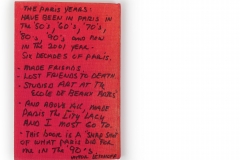 THE PARIS YEARS:
HAVE BEEN IN PARIS IN
THE 50's, '60's, '70's,
'80's, '90's, AND NOW
IN THE 2001 YEAR -
SIX DECADES OF PARIS.
MADE FRIENDS.
LOST FRIENDS TO DEATH.
STUDIED ART AT THE
ECOLE DE BEAUX ARTS
AND ABOVE ALL, MADE
PARIS THE CITY
AND I MUST GO TO.
THIS BOOK IS A
OF WHAT PARIS DID FOR
ME IN THE '90's.